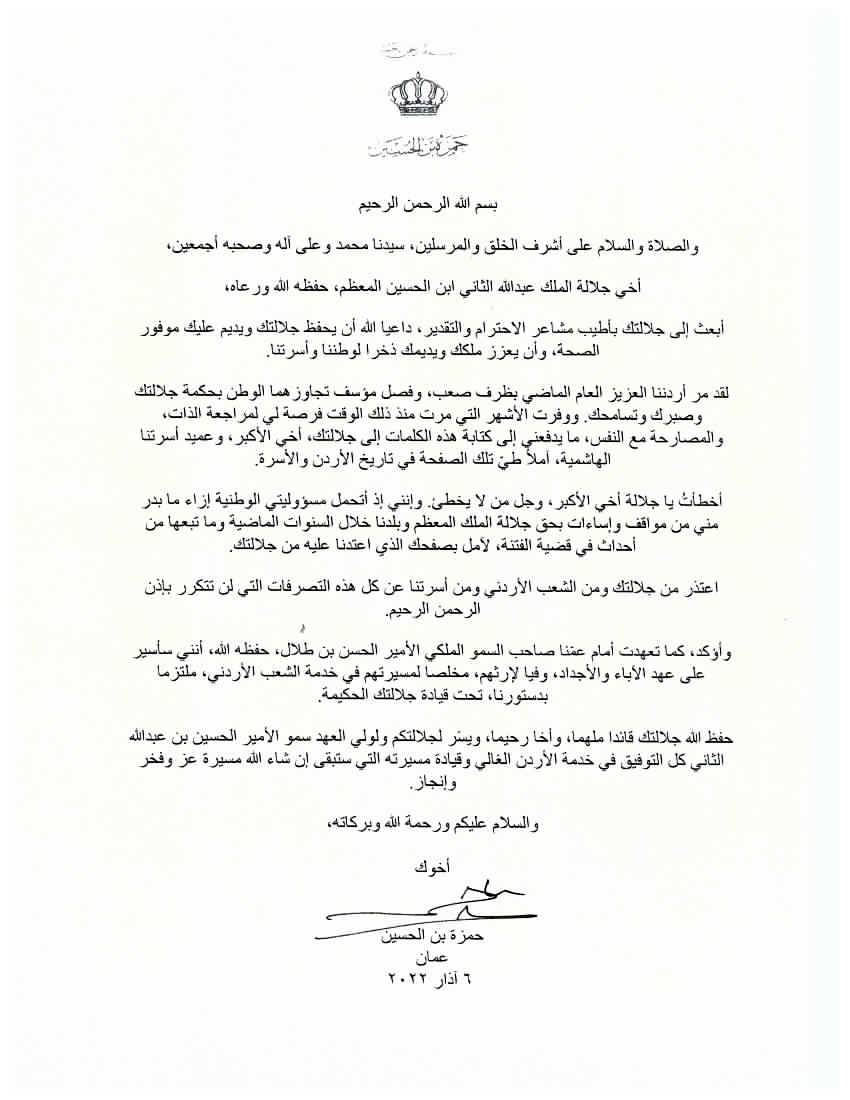 حمزة بن الحسين
بسم الله الرحمن الرحيم
والصلاة والسلام على أشرف الخلق والمرسلين، سيدنا محمد وعلى آله وصحبه أجمعين،
أخي جلالة الملك عبدالله الثاني ابن الحسين المعظم، حفظه الله ورعاه،
أبعث إلى جلالتك بأطيب مشاعر الاحترام والتقدير، داعيا الله أن يحفظ جلالتك ويديم عليك موفور
الصحة، وأن يعزز ملكك ويديمك ذخرا لوطننا وأسرتنا.
لقد مر أردننا العزيز العام الماضي بظرف صعب، وفصل مؤسف تجاوزهما الوطن بحكمة جلالتك
وصبرك وتسامحك. ووفرت الأشهر التي مرت منذ ذلك الوقت فرصة لي لمراجعة الذات،
والمصارحة مع النفس، ما يدفعني إلى كتابة هذه الكلمات إلى جلالتك، أخي الأكبر، وعميد أسرتنا
الهاشمية، آملاً طيّ تلك الصفحة في تاريخ الأردن والأسرة.
أخطأتُ يا جلالة أخي الأكبر، وجل من لا يخطئ. وإنني إذ أتحمل مسؤوليتي الوطنية إزاء ما بدر
مني من مواقف وإساءات بحق جلالة الملك المعظم وبلدنا خلال السنوات الماضية وما تبعها من
أحداث في قضية الفتنة، لآمل بصفحك الذي اعتدنا عليه من جلالتك.
اعتذر من جلالتك ومن الشعب الأردني ومن أسرتنا عن كل هذه التصرفات التي لن تتكرر بإذن
الرحمن الرحيم.
وأؤكد، كما تعهدت أمام عمّنا صاحب السمو الملكي الأمير الحسن بن طلال، حفظه الله، أنني سأسير
على عهد الآباء والأجداد، وفيا لإرثهم، مخلصا لمسيرتهم في خدمة الشعب الأردني، ملتزما
بدستورنا، تحت قيادة جلالتك الحكيمة.
حفظ الله جلالتك قائدا ملهما، وأخا رحيما، ويسّر لجلالتكم ولولي العهد سمو الأمير الحسين بن عبدالله
الثاني كل التوفيق في خدمة الأردن الغالي وقيادة مسيرته التي ستبقى إن شاء الله مسيرة عز وفخر
وإنجاز.
والسلام عليكم ورحمة الله وبركاته،
أخوك
حمزة بن الحسين
عمان
٦ آذار ٢٠٢٢